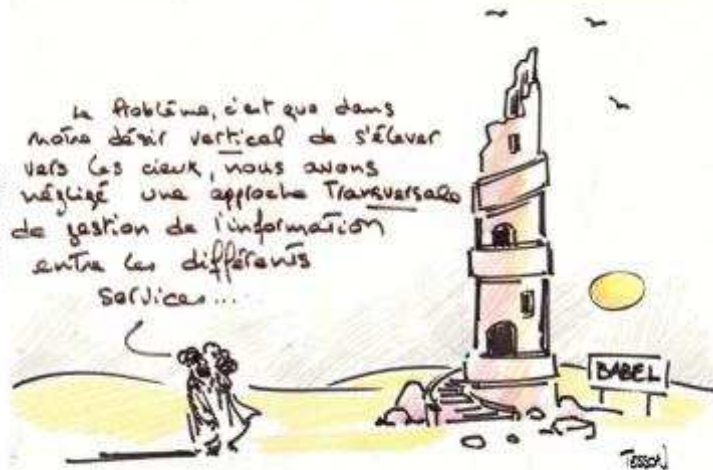 Le Problème, c'est que dans
notre désir vertical de s'élever
vers les cieux, nous avons
négligé une approche Transversale
de gestion de l'information
entre les différents
services...
BABEL
TESSON